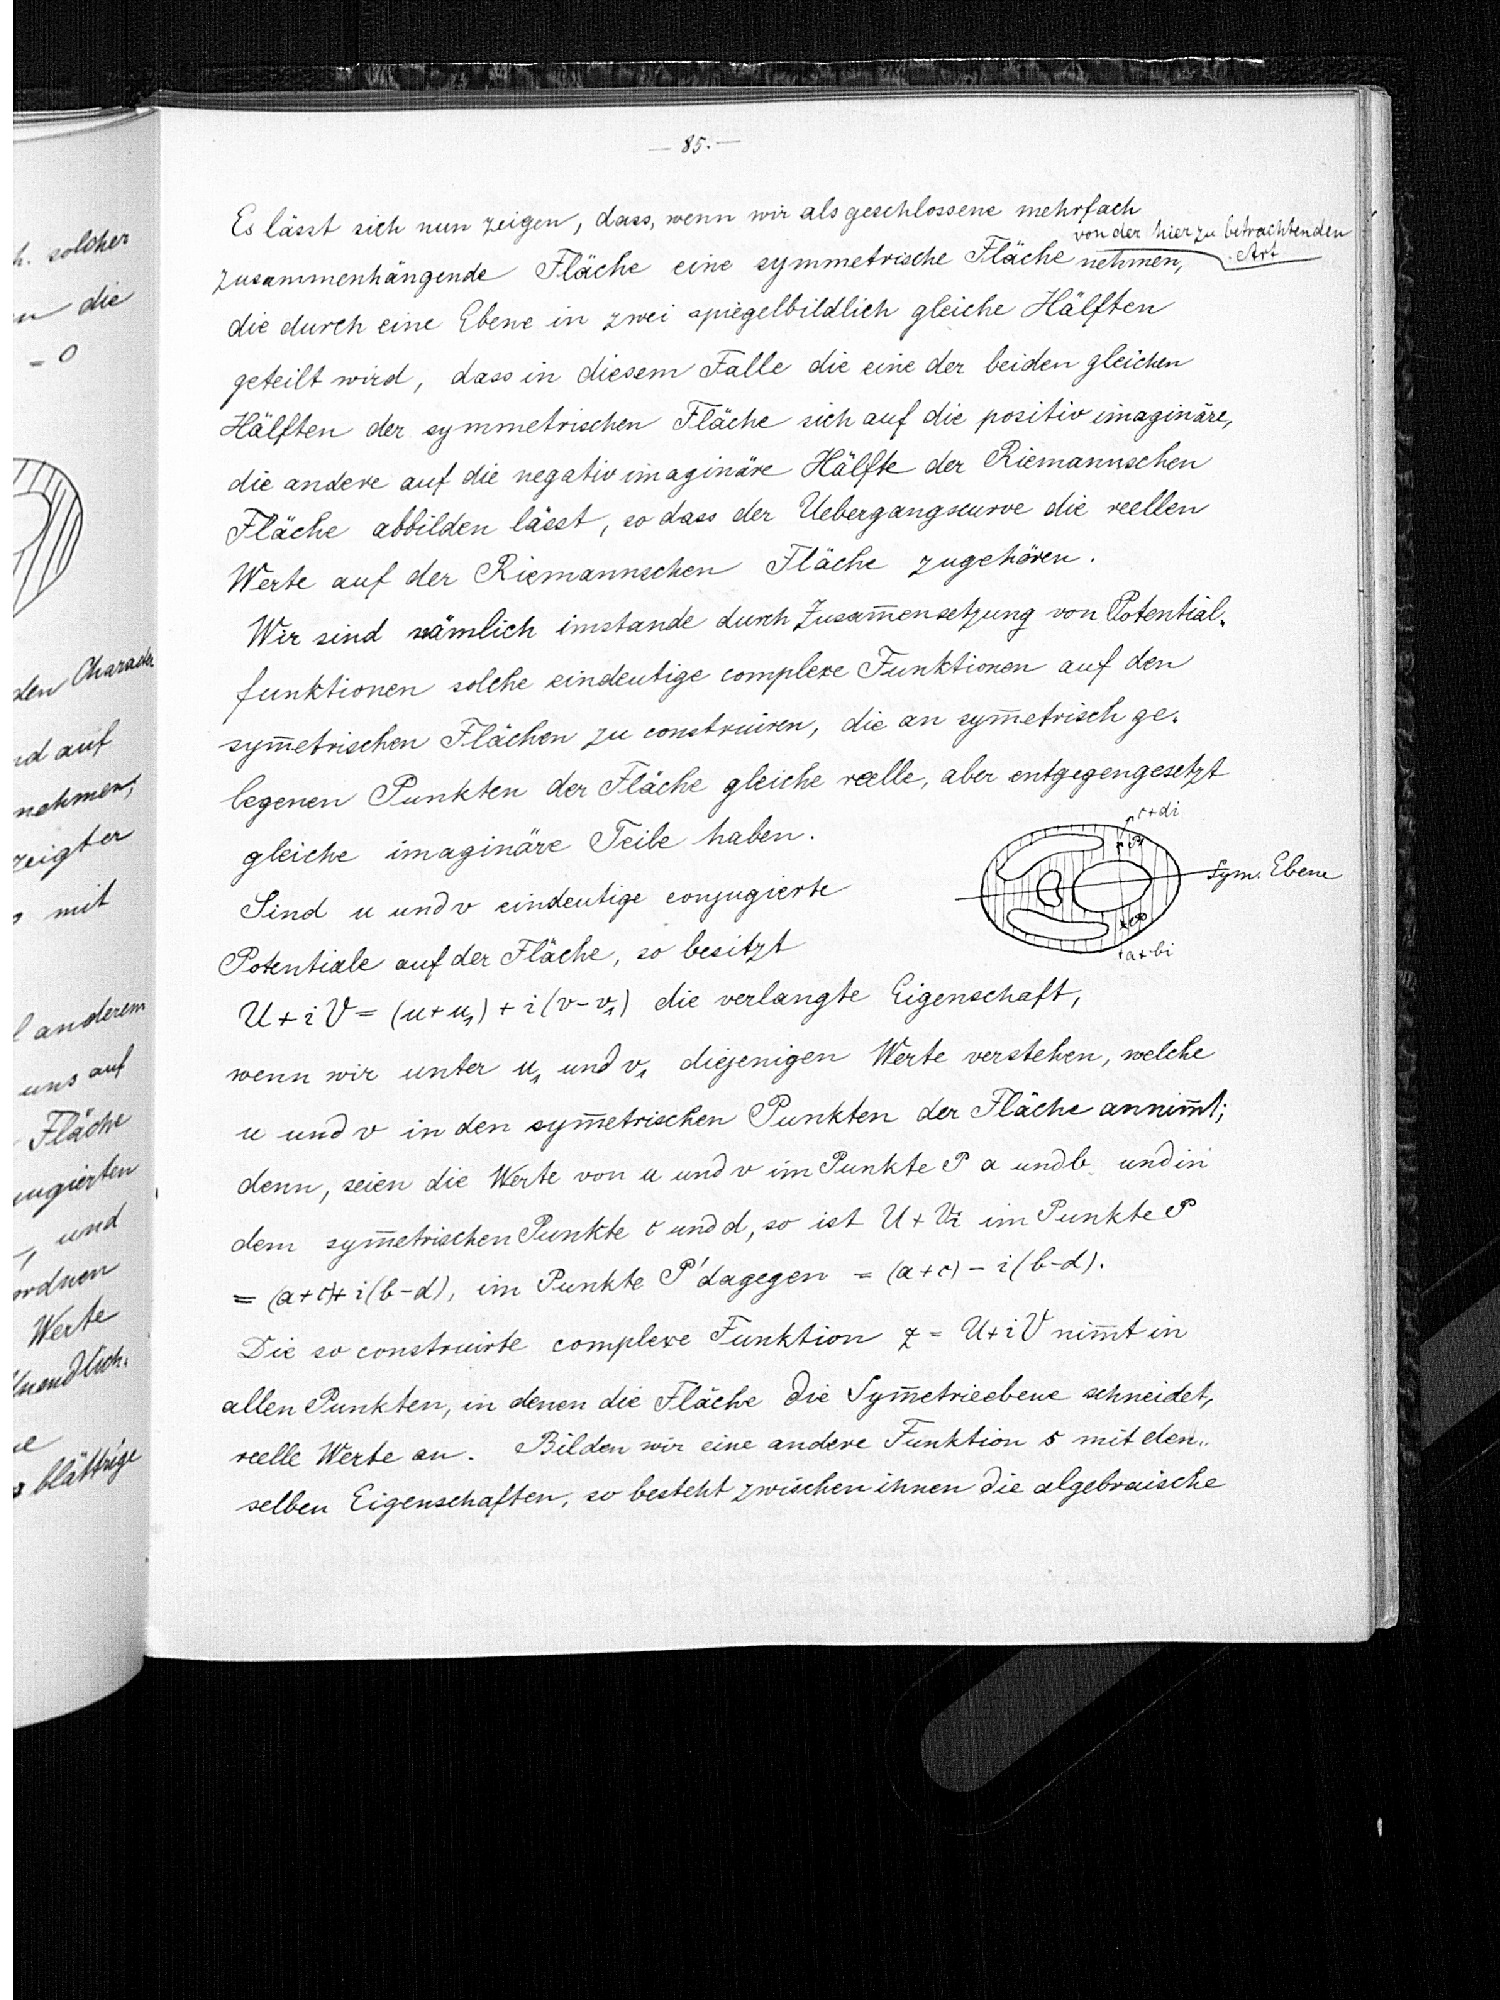 h. solcher
die
- 0
den Charakt
nd auf
nehmen,
zeigter
mit
l anderem
uns auf
Fläche
ugierten
, und
ordnen
Werte
Unendlich-
blättrige
— 85. —
Es lässt sich nun zeigen, dass, wenn wir als geschlossene mehrfach
von der hier zu betrachtenden
Art
zusammenhängende Fläche eine symmetrische Fläche nehmen,
die durch eine Ebene in zwei spiegelbildlich gleiche Hälften
geteilt wird, dass in diesem Falle die eine der beiden gleichen
Hälften der symmetrischen Fläche sich auf die positiv imaginäre,
die andere auf die negativ imaginäre Hälfte der Riemannschen
Fläche abbilden lässt, so dass der Uebergangscurve die reellen
Werte auf der Riemannschen Fläche zugehören.
Wir sind nämlich imstande durch Zusam̅ensetzung von Potential-
funktionen solche eindeutige complexe Funktionen auf den
sym̅etrischen Flächen zu construiren, die an sym̅etrisch ge-
legenen Punkten der Fläche gleiche reelle, aber entgegengesetzt
gleiche imaginäre Teile haben.
c+di
∞
Sym. Ebene
∞
a+bi
Sind u und v eindeutige conjugierte
Potentiale auf der Fläche, so besitzt
U + iV = (u+u₁) + i(v-v₁) die verlangte Eigenschaft,
wenn wir unter u₁ und v₁ diejenigen Werte verstehen, welche
u und v in den sym̅etrischen Punkten der Fläche annim̅t;
denn, seien die Werte von u und v im Punkte P a und b und in
dem sym̅etrischen Punkte c und d, so ist U + Vi im Punkte P
= (a+c)+i(b-d), im Punkte P' dagegen = (a+c) - i(b-d).
Die so construirte complexe Funktion z = U+iV nim̅t in
allen Punkten, in denen die Fläche die Sym̅etrieebene schneidet,
reelle Werte an. Bilden wir eine andere Funktion s mit den-
selben Eigenschaften, so besteht zwischen ihnen die algebraische